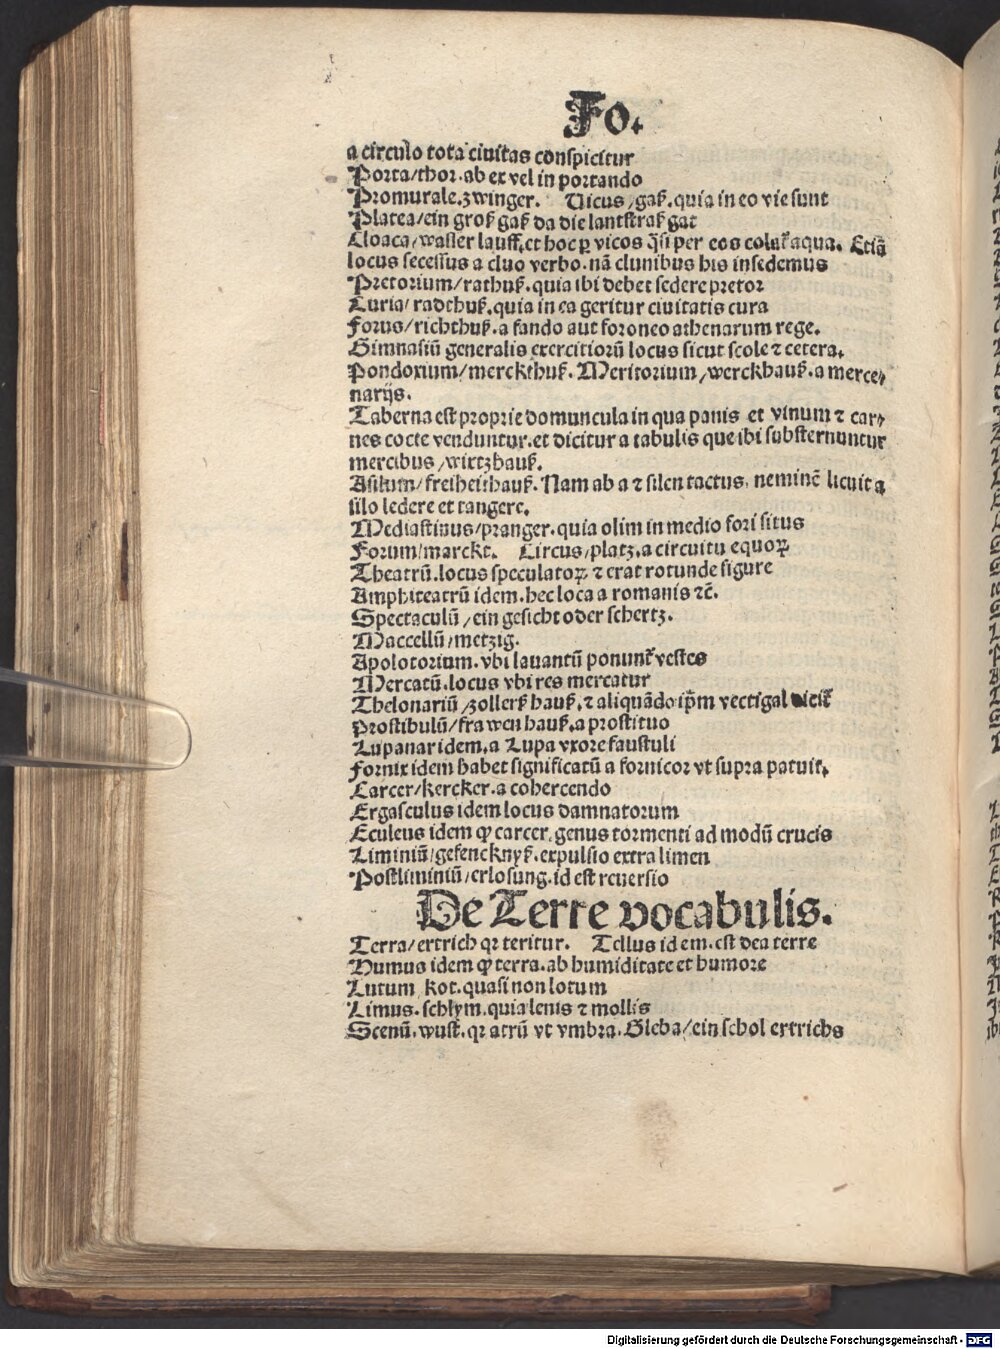 Fo.
a circulo tota ciuitas conspicitur
Porta/thor.ab ex vel in portando
Promurale.zwinger. Vicus/gaß.quia in eo vie sunt
Platea/ein groß gaß da die lantstraß gat
Cloaca/wasser lauff.et hoc ꝑ vicos q̄si per eos colat᷑ aqua. Etiā
locus secessus a cluo verbo.nā clunibus his insedemus
Pretorium/rathuß.quia ibi debet sedere pretor
Curia/radthuß.quia in ea geritur ciuitatis cura
Forus/richthuß.a fando aut foroneo athenarum rege.
Gimnasiū generalis exercitiorū locus sicut scole ⁊ cetera.
Pondoxium/merckthuß. Meritorium/werckhauß.a merce/
narijs.
Taberna est proprie domuncula in qua panis et vinum ⁊ car/
nes cocte venduntur.et dicitur a tabulis que ibi substernuntur
mercibus/wirtzhauß.
Asilum/freiheithauß. Nam ab a ⁊ silen tactus, neminē licuit a
silo ledere et tangere.
Mediastinus/pranger.quia olim in medio fori situs
Forum/marckt. Circus/platz.a circuitu equoꝝ
Theatrū.locus speculatoꝝ ⁊ erat rotunde figure
Amphiteatrū idem.hec loca a romanis ⁊c̄.
Spectaculū/ein gesicht oder schertz.
Maccellū/metzig.
Apolotorium.vbi lauantū ponunt᷑ vestes
Mercatū.locus vbi res mercatur
Thelonariū/zollerß hauß.⁊ aliquādo ip̄m vectigal dicit᷑
Prostibulū/frawen hauß.a prostituo
Lupanar idem.a Lupa vxore faustuli
Fornix idem habet significatū a fornicor vt supra patuit.
Carcer/kercker.a cohercendo
Ergasculus idem locus damnatorum
Eculeus idem ꝙ carcer.genus tormenti ad modū crucis
Liminiū/gefencknyß.expulsio extra limen
Postliminiū/erlosung.id est reuersio
De Terre vocabulis.
Terra/ertrich qꝛ teritur. Tellus idem.est dea terre
Humus idem ꝙ terra.ab humiditate et humore
Lutum kot.quasi non lotum
Limus.schlym.quia lenis ⁊ mollis
Scenū.wust.qꝛ atrū vt vmbra.Gleba/ein schol ertrichs
Digitalisierung gefördert durch die Deutsche Forschungsgemeinschaft - DFG